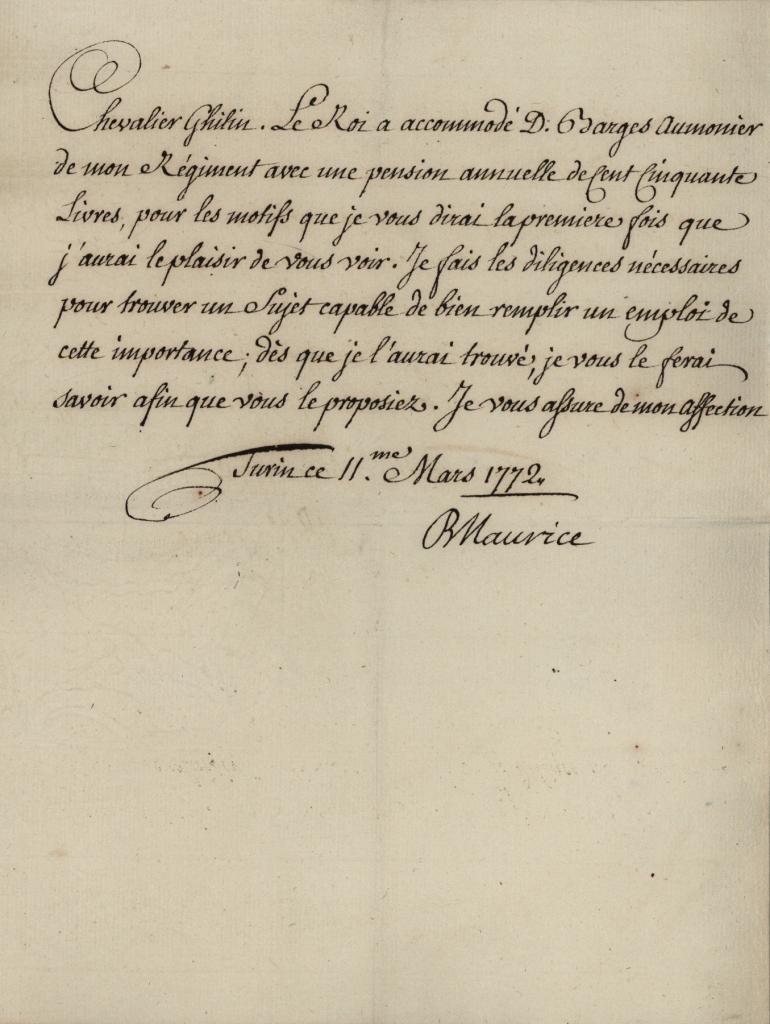 Chevalier Ghilin. Le Roi a accommodé D. Barges Aumonier
de mon Régiment avec une pension annuelle de Cent Cinquante
Livres, pour les motifs que je vous dirai la premiere fois que
j'aurai le plaisir de vous voir. Je fais les diligences nécessaires
pour trouver un Sujet capable de bien remplir un emploi de
cette importance; dès que je l'aurai trouvé, je vous le ferai
savoir afin que vous le proposiez. Je vous assure de mon affection
Turin ce 11.me Mars 1772.
BMaurice